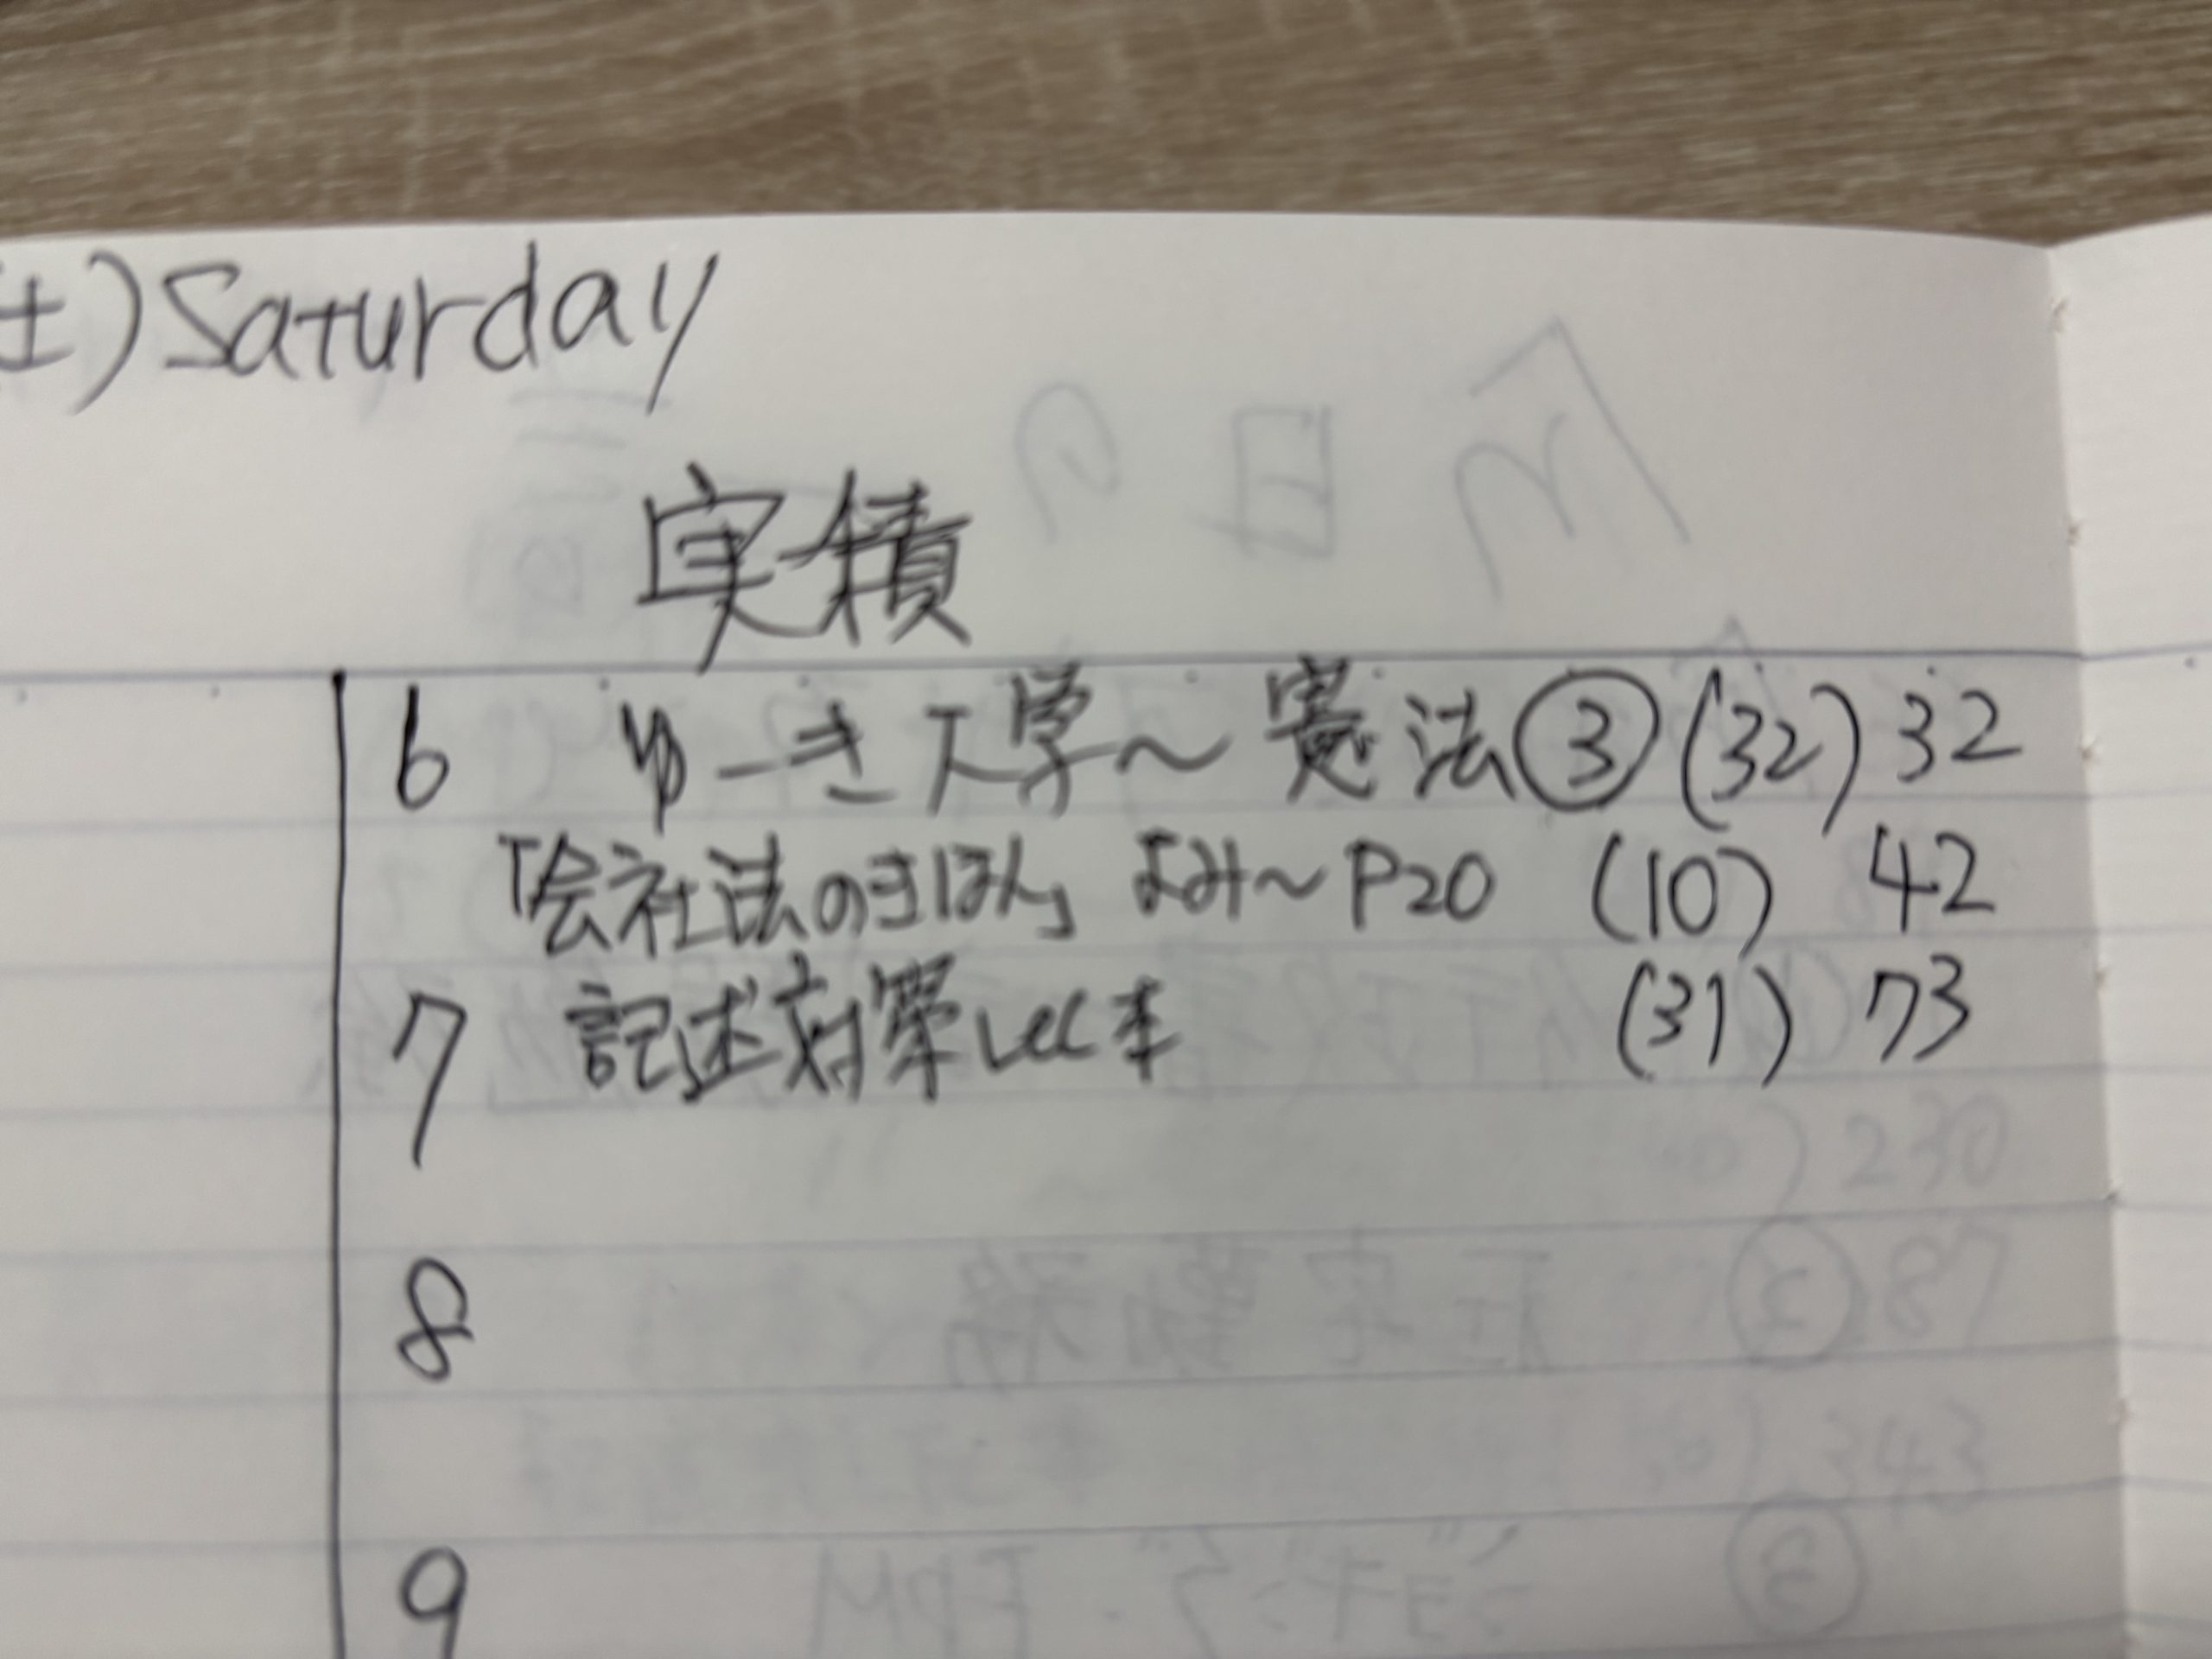 土) Saturday
実績
6 ゆーき大学～憲法③ (32) 32
「会社法のきほん」よみ～P20 (10) 42
7 記述対策Lec本 (31) 73
8
9